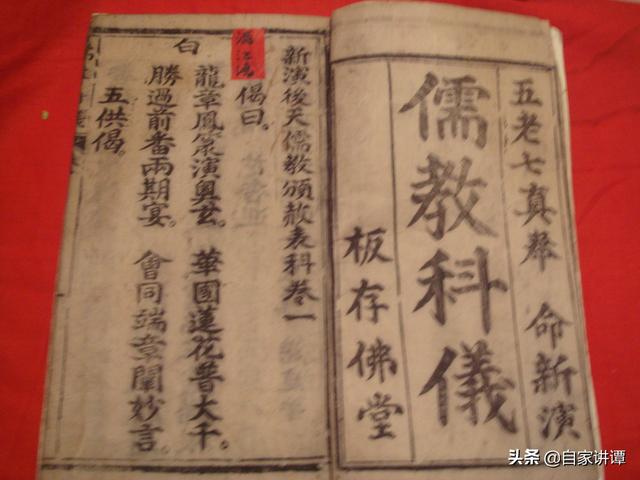 五老七真奉 命新演
儒教科儀
板存佛堂
新演後天儒教頒赦表科卷一
滿江鴻
偈曰。
龍章鳳篆演奥玄。 華國蓮花普大千。
白
勝過前番兩期宴。 會同端章闡妙言。
五供偈。
头条 @自家讲谭